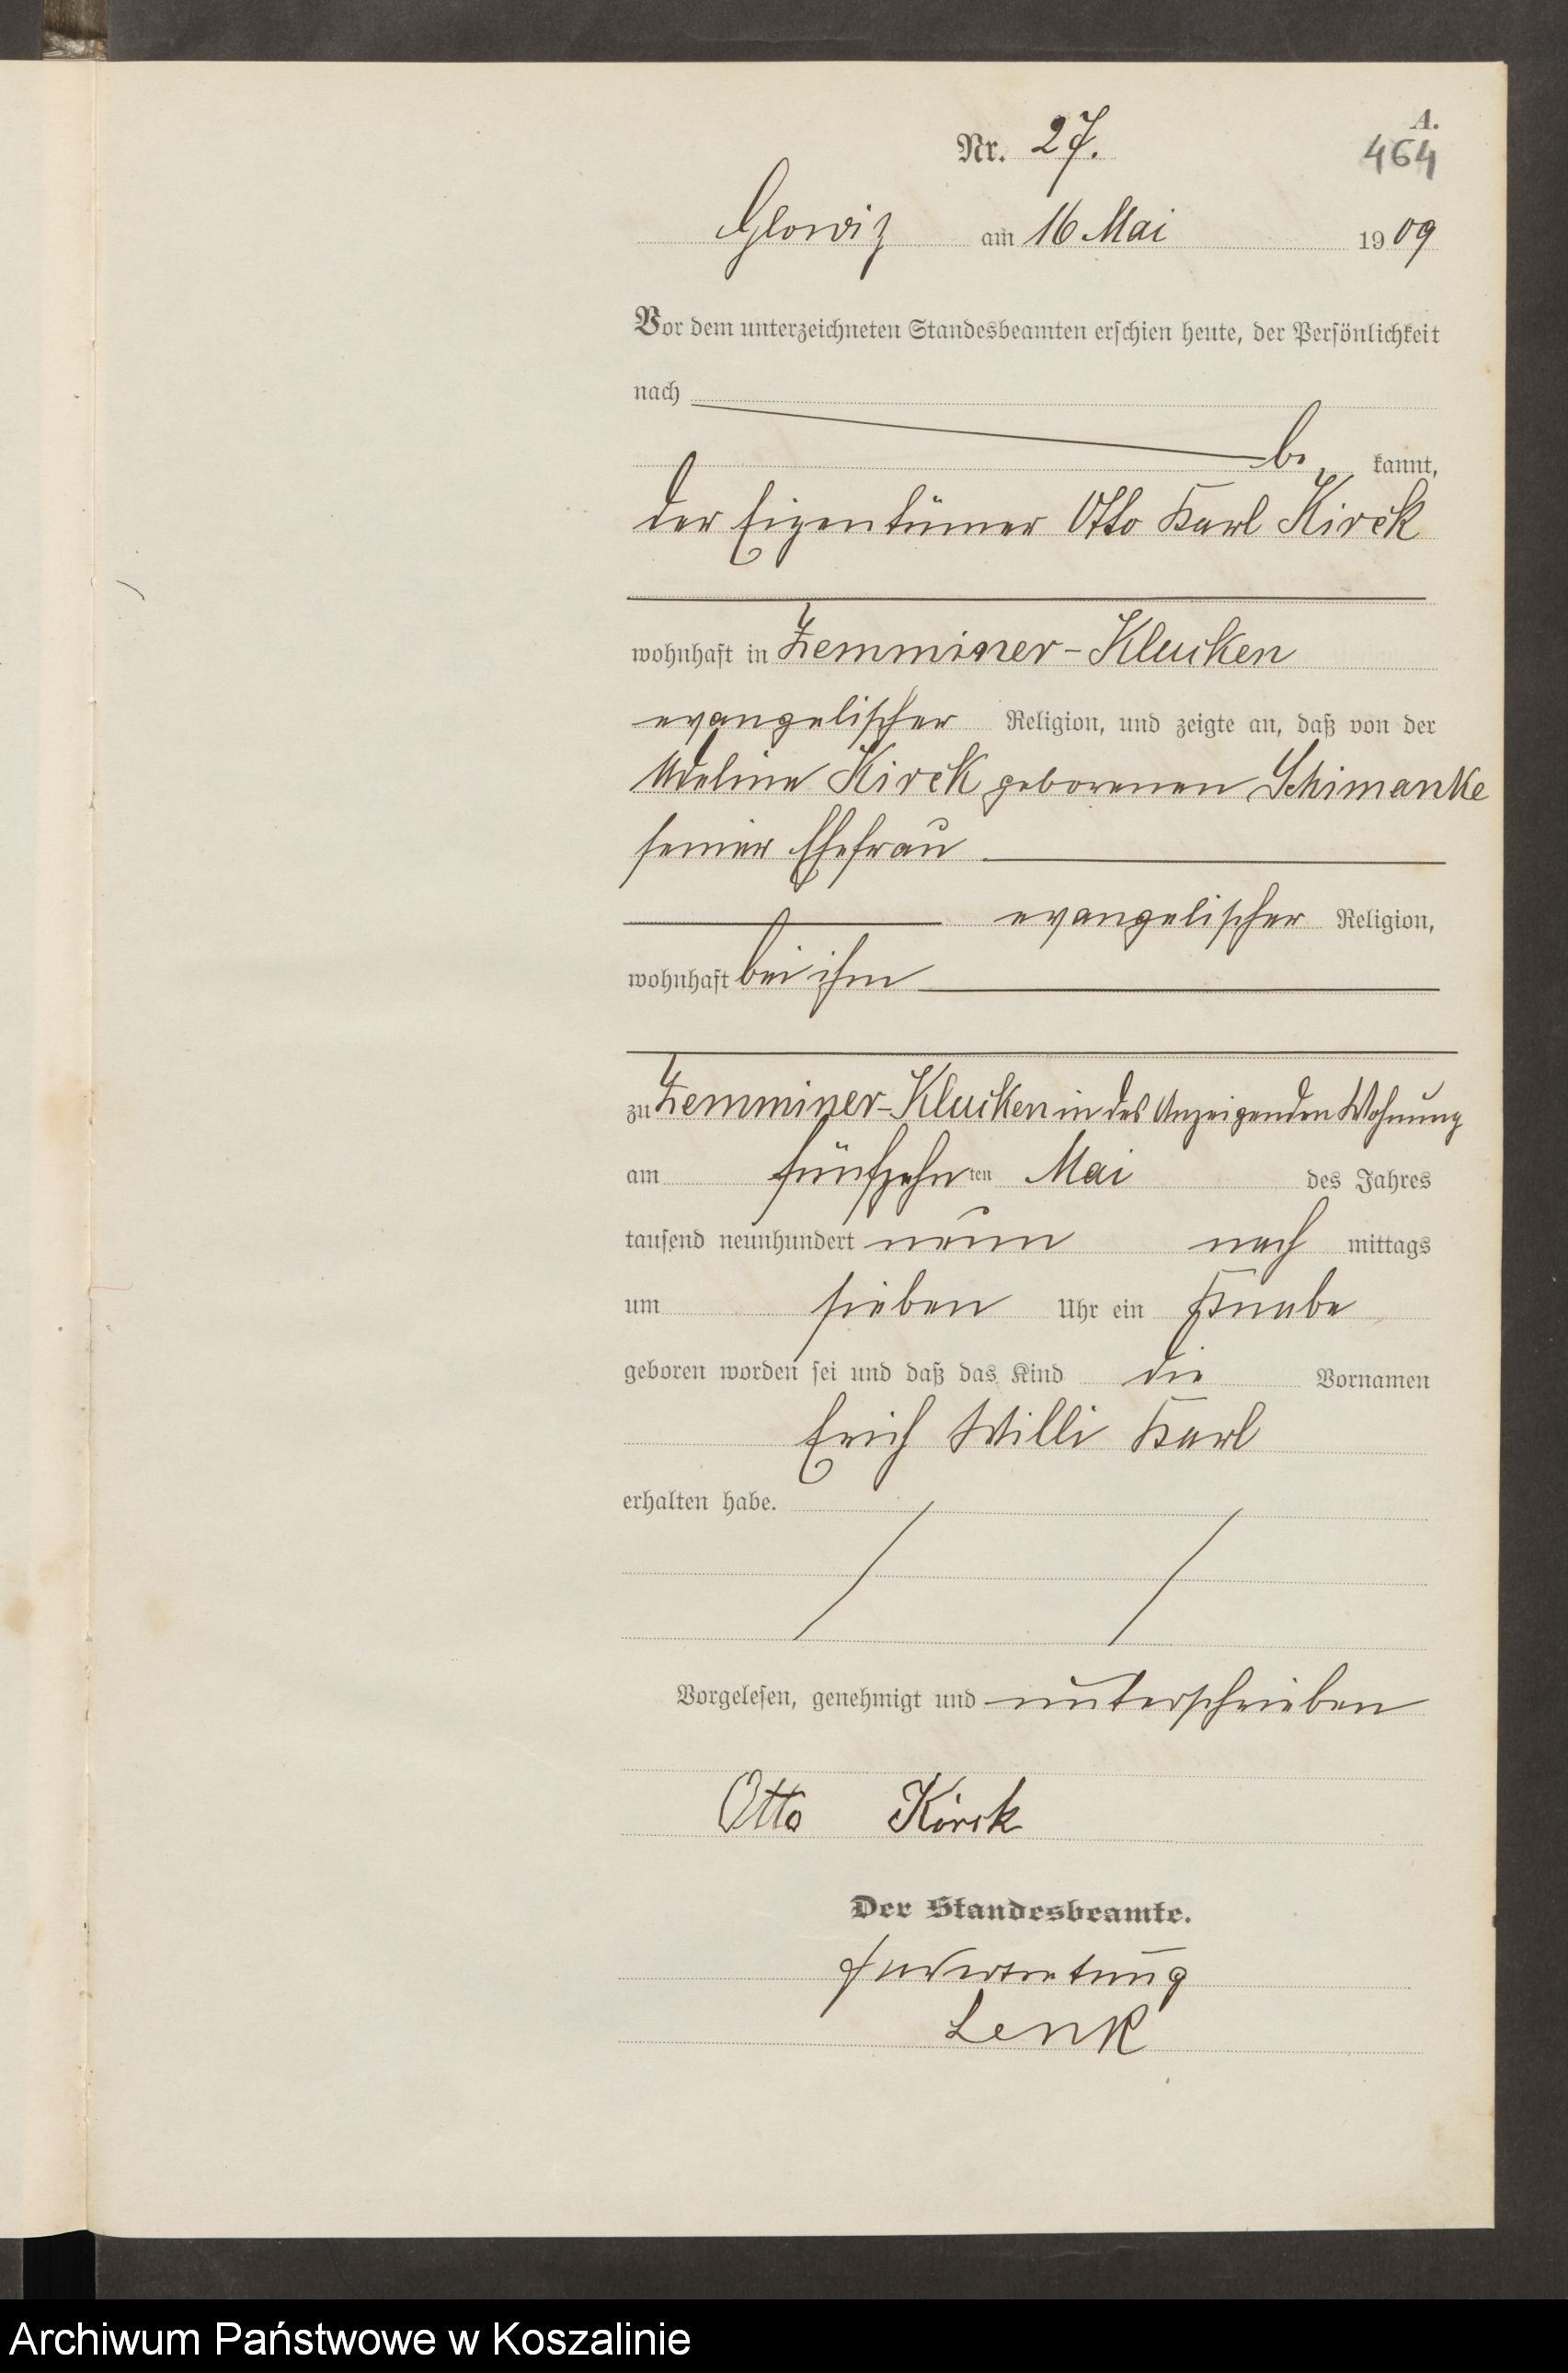 A.
Nr. 27.
464
Glowitz am 16 Mai 1909
Vor dem unterzeichneten Standesbeamten erschien heute, der Persönlichkeit
nach
be kannt,
der Eigentümer Otto Karl Kirck
wohnhaft in Zemminer-Klucken
evangelischer Religion, und zeigte an, daß von der
Adeline Kirck geborenen Schimanke
seiner Ehefrau
evangelischer Religion,
wohnhaft bei ihm
zu Zemminer-Klucken in des Anzeigenden Wohnung
am fünfzehnten Mai des Jahres
tausend neunhundert neun nach mittags
um sieben Uhr ein Knabe
geboren worden sei und daß das Kind die Vornamen
Erich Willi Karl
erhalten habe.
Vorgelesen, genehmigt und unterschrieben
Otto Kirck
Der Standesbeamte.
In Vertretung
Lenk
Archiwum Państwowe w Koszalinie